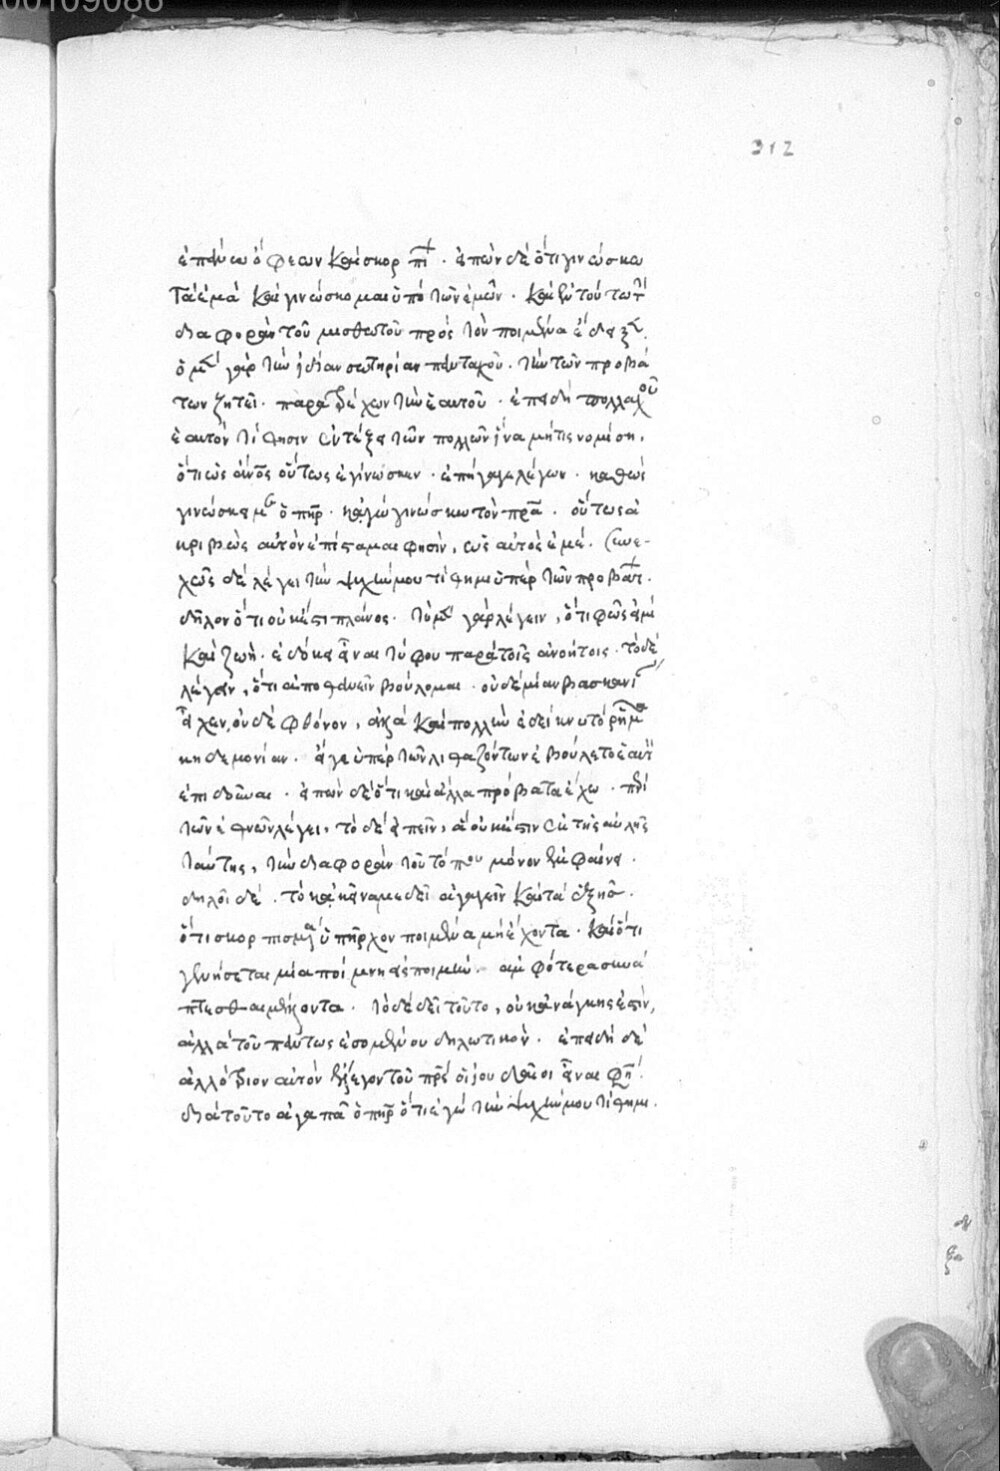 00109086
312
ἐπάνω ὄφεων καὶ σκορπί. εἰπὼν δὲ ὅτι γινώσκω
τὰ ἐμὰ καὶ γινώσκομαι ὑπὸ τῶν ἐμῶν. καὶ ἐν τούτω τὴν
διαφορὰν τοῦ μισθωτοῦ πρὸς τὸν ποιμένα ἔδειξεν.
ὁ μὲν γὰρ τὴν ἰδίαν σωτηρίαν πανταχοῦ. τὴν τῶν προβά
των ζητεῖ. παρατρέχων τὴν ἑαυτοῦ. ἐπειδὴ πολλαχοῦ
ἑαυτὸν τίθησιν ἐν τάξει τῶν πολλῶν ἵνα μή τις νομίση,
ὅτι ὡς ἄνος οὕτως ἐγίνωσκεν. ἐπήγαγε λέγων. καθὼς
γινώσκει με ὁ πηρ. κἀγὼ γινώσκω τὸν πρα. οὕτως ἀ
κριβῶς αὐτὸν ἐπίσταμαι φησὶν, ὡς αὐτὸς ἐμέ. συνε-
χῶς δὲ λέγει τὴν ψυχήν μου τίθημι ὑπὲρ τῶν προβάτ.
δῆλον ὅτι οὐκ ἔστι πλάνος. τὸ μὲν γὰρ λέγειν, ὅτι φῶς εἰμὶ
καὶ ζωὴ. ἐδόκει εἶναι τύφου παρὰ τοῖς ἀνοήτοις. τὸ δὲ
λέγειν, ὅτι ἀποθανεῖν βούλομαι. οὐδεμίαν βασκανί
εἶχεν, οὐδὲ φθόνον, ἀλλὰ καὶ πολλὴν ἐδείκνυ τὸ ρῆμα
κηδεμονίαν. εἴγε ὑπὲρ τῶν λιθαζόντων ἐβούλετο ἑαυτὸ
ἐπιδοῦναι. εἰπὼν δὲ ὅτι καὶ ἄλλα πρόβατα ἔχω. περὶ
τῶν ἐθνῶν λέγει, τὸ δὲ εἰπεῖν, ἃ οὐκ ἔστιν ἐκ τῆς αὐλῆς
ταύτης, τὴν διαφορὰν τοῦ τόπου μόνον ἐμφαίνει.
δηλοῖ δὲ. τὸ κἀκεῖνά με δεῖ ἀγαγεῖν καὶ τὰ ἑξῆς.
ὅτι σκορπισμένα ὑπῆρχον ποιμένα μὴ ἔχοντα. καὶ ὅτι
γενήσεται μία ποίμνη εἷς ποιμήν. ἀμφότερα συνά
πτεσθαι μέλλοντα. τὸ δὲ δεῖ τοῦτο, οὐκ ἀνάγκης ἐστὶν,
ἀλλὰ τοῦ πάντως ἐσομένου δηλωτικὸν. ἐπειδὴ δὲ
ἀλλότριον αὐτὸν ἔλεγον τοῦ πρς οἱ ἰουδαῖοι εἶναι φη.
διὰ τοῦτο ἀγαπᾶ ὁ πηρ ὅτι ἐγὼ τὴν ψυχήν μου τίθημι.